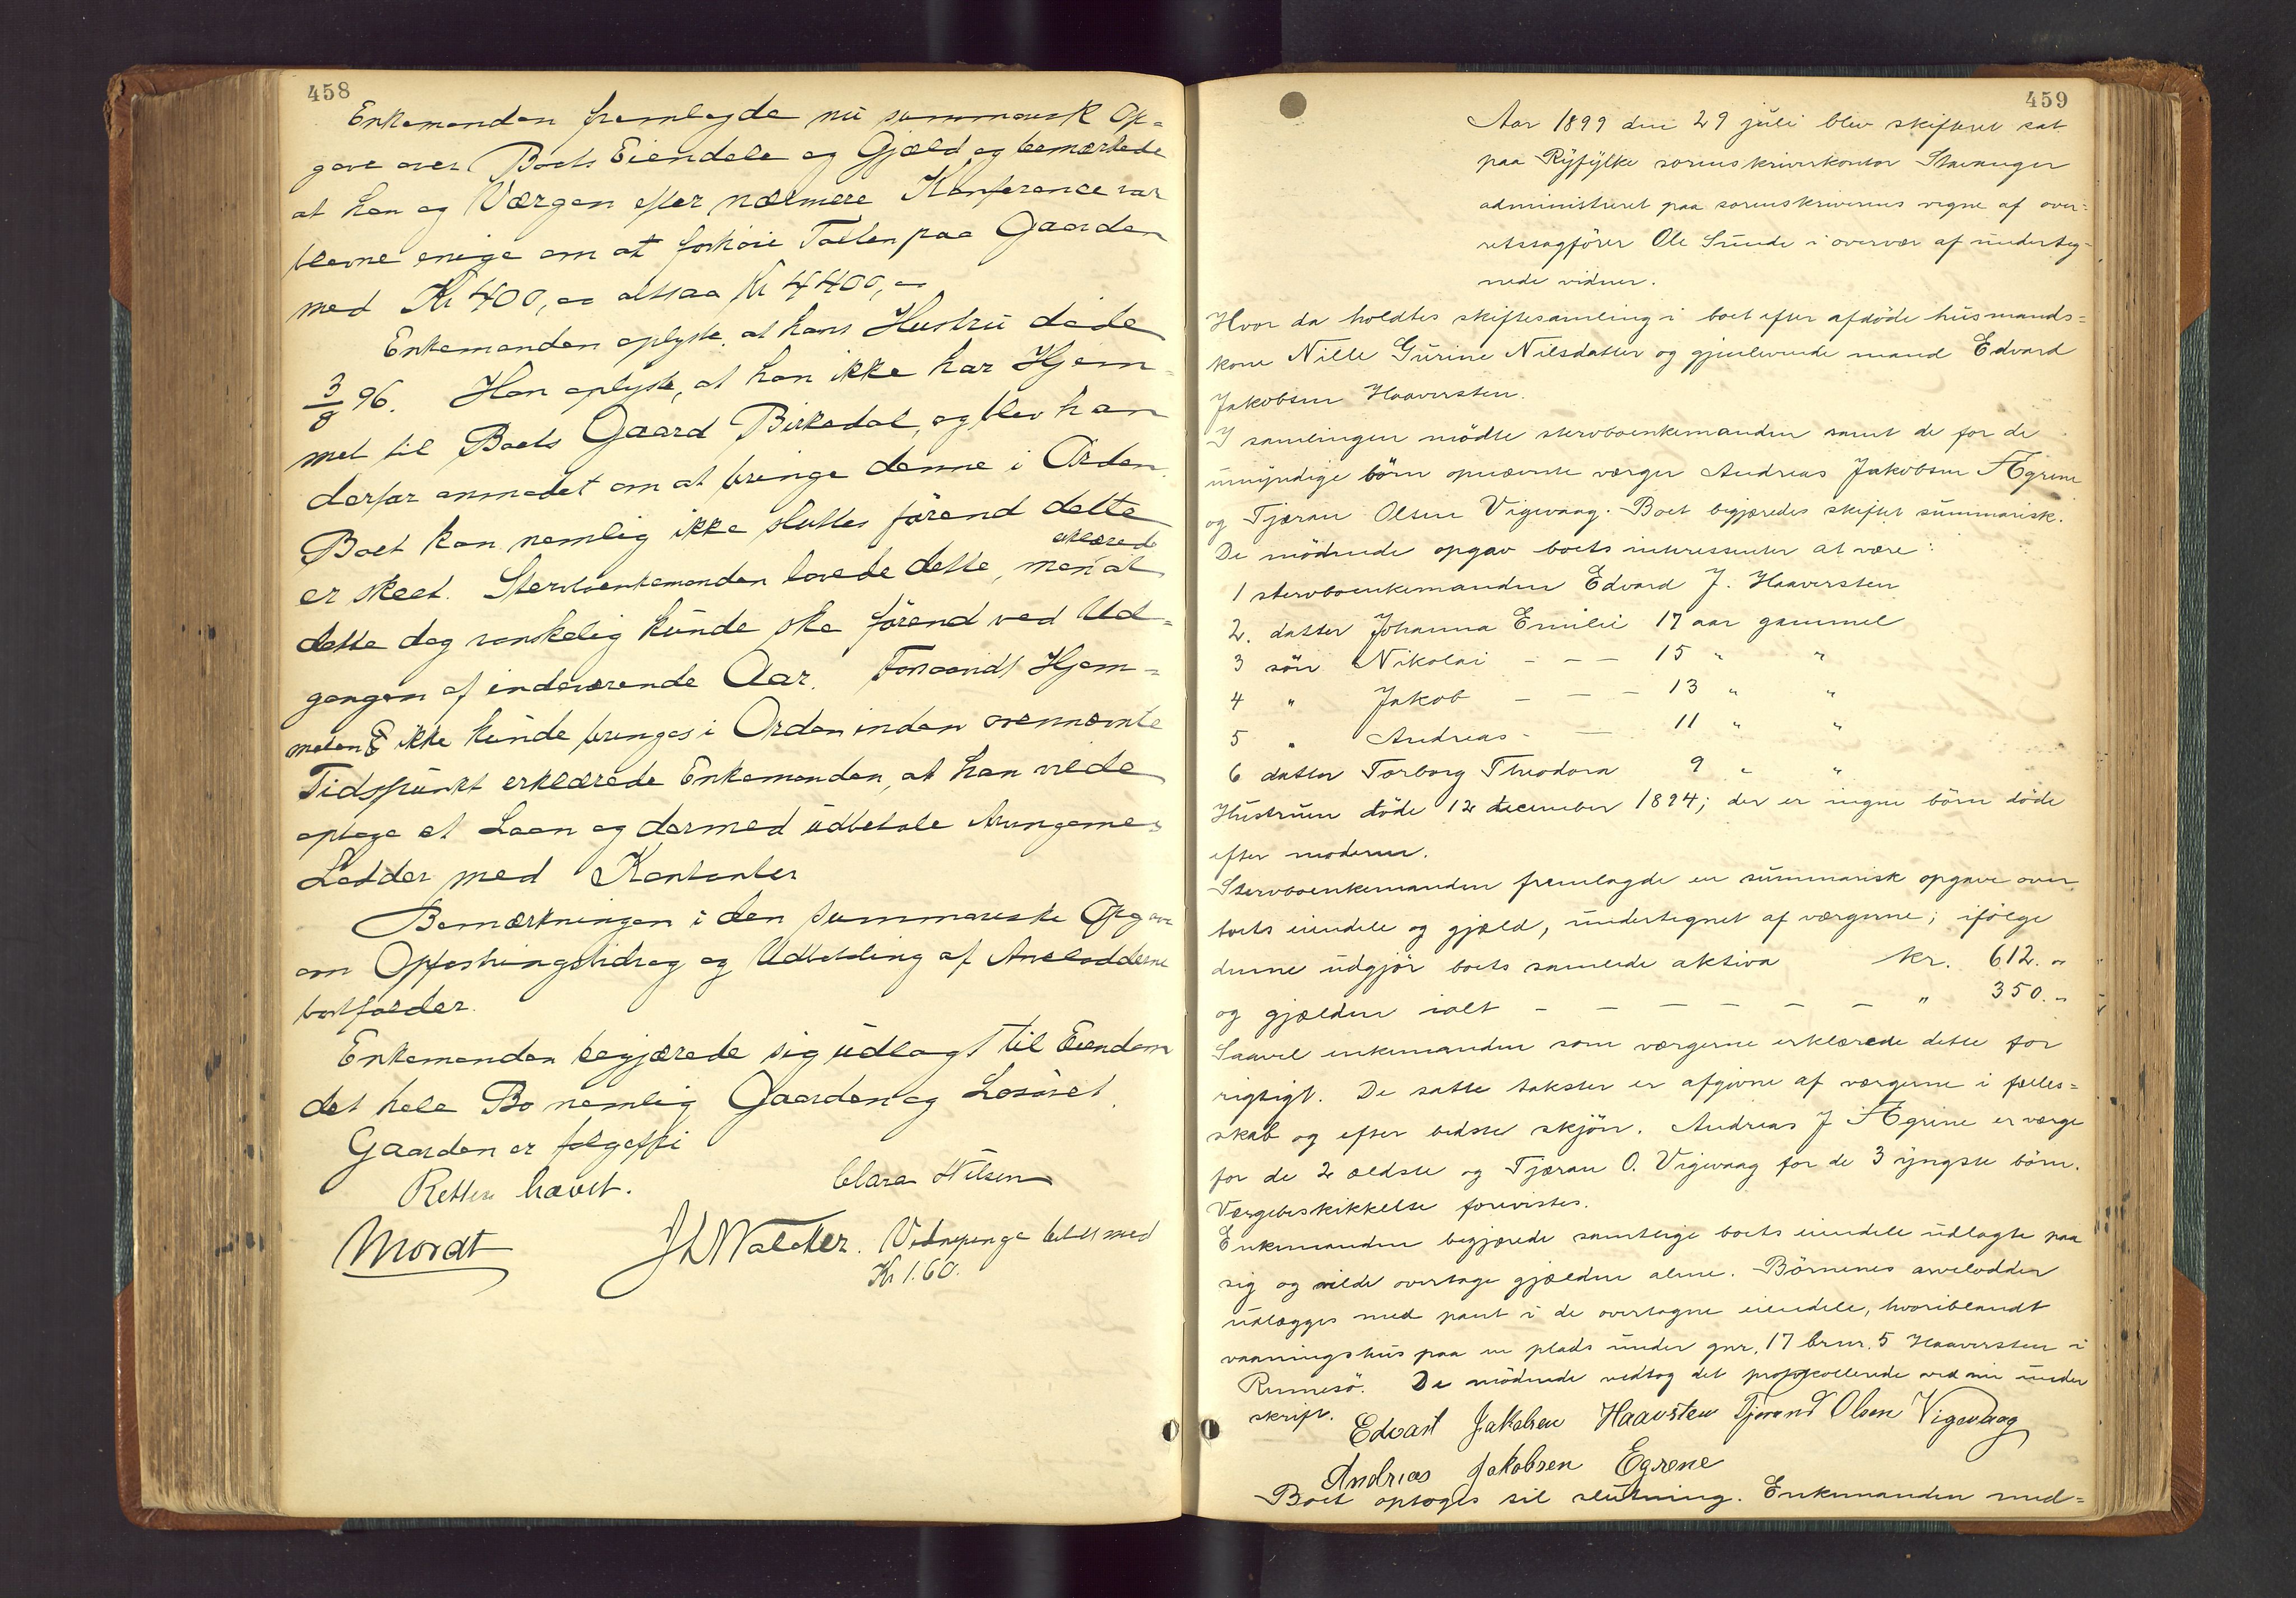 458
Enkemanden fremlagde nu summarisk Op-
gave over Boets Eiendele og Gjæld og bemærkede
at han og Værgen efter nærmere Konferance var
blevne enige om at forhøie Taxten paa Gaarden
med Kr 400,oo altsaa Kr 4400,oo
Enkemanden oplyste, at hans Hustru døde
3/8 96. Han oplyste, at han ikke har Hjem-
mel til Boets Gaard Birkedal, og blev han
derfor anmodet om at bringe denne i Orden.
Boet kan nemlig ikke sluttes førend dette
er skeet. Stervboenkemanden lovede dette, men erklærede at
dette dog vanskelig kunde ske førend ved Ud-
gangen af indeværende Aar. Forsaavidt Hjem-
melen ikke kunde bringes i Orden inden ovennævnte
Tidspunkt erklærede Enkemanden, at han vilde
optage et Laan og dermed udbetale Arvingernes
Lodder med Kontanter
Bemærkningen i den summariske Opgave
om Opfostringsbidrag og Udbetaling af Arvelodderne
bortfalder.
Enkemanden begjærede sig udlagt til Eiendom
det hele Bo nemlig Gaarden og Løsøret.
Gaarden er
Retten hævet.
Clara Nilsen
Mordt
Vidnepenge betalt med
Kr 1.60.
459
Aar 1899 den 29 juli blev skifteret sat
paa Ryfylke sorenskriverkontor Stavanger
administreret paa sorenskriverens vegne af over-
retssagfører Ole Sunde i overvær af underteg-
nede vidner.
Hvor da holdtes skiftesamling i boet efter afdøde husmands-
kone Nille Gurine Nilsdatter og gjenlevende mand Edvard
Jakobsen Haaversten.
I samlingen mødte stervboenkemanden samt de for de
umyndige børn opnævnte værger Andreas Jakobsen Ægrene
og Tjæran Olsen Vigevaag. Boet begjæredes skiftet summarisk.
De mødende opgav boets interessenter at være:
1 stervboenkemanden Edvard J. Haaversten
2. datter Johanna Emilie 17 aar gammel
3 søn Nikolai - - - 15 " "
4 " Jakob - - - 13 " "
5 " Andreas - - 11 " "
6 datter Torborg Theodora 9 " "
Hustruen døde 12 december 1894; der er ingen børn døde
efter moderen.
Stervboenkemanden fremlagde en summarisk opgave over
boets eiendele og gjæld, undertegnet af værgerne; ifølge
denne udgjør boets samlede aktiva kr. 612. "
og gjælden ialt - - - - - - - " 350. "
Saavel enkemanden som værgerne erklærede dette for
rigtigt. De satte takster er afgivne af værgerne i fælles-
skab og efter bedste skjøn. Andreas J Ægrene er værge
for de 2 ældste og Tjæran O. Vigevaag for de 3 yngste børn.
Værgebeskikkelse forevistes.
Enkemanden begjærede samtlige boets eiendele udlagte paa
sig og vilde overtage gjælden alene. Børnenes arvelodder
udlægges med pant i de overtagne eiendele, hvoriblandt
vaaningshus paa en plads under gnr. 17 brnr. 5 Haaversten i
Rennesø. De mødende vedtog det protokollerede ved sin under
skrift.
Edvart Jakobsen Haavsten Tjerand Olsen Vigevaag
Andrias Jakobsen Egrene
Boet optoges til slutning. Enkemanden med-